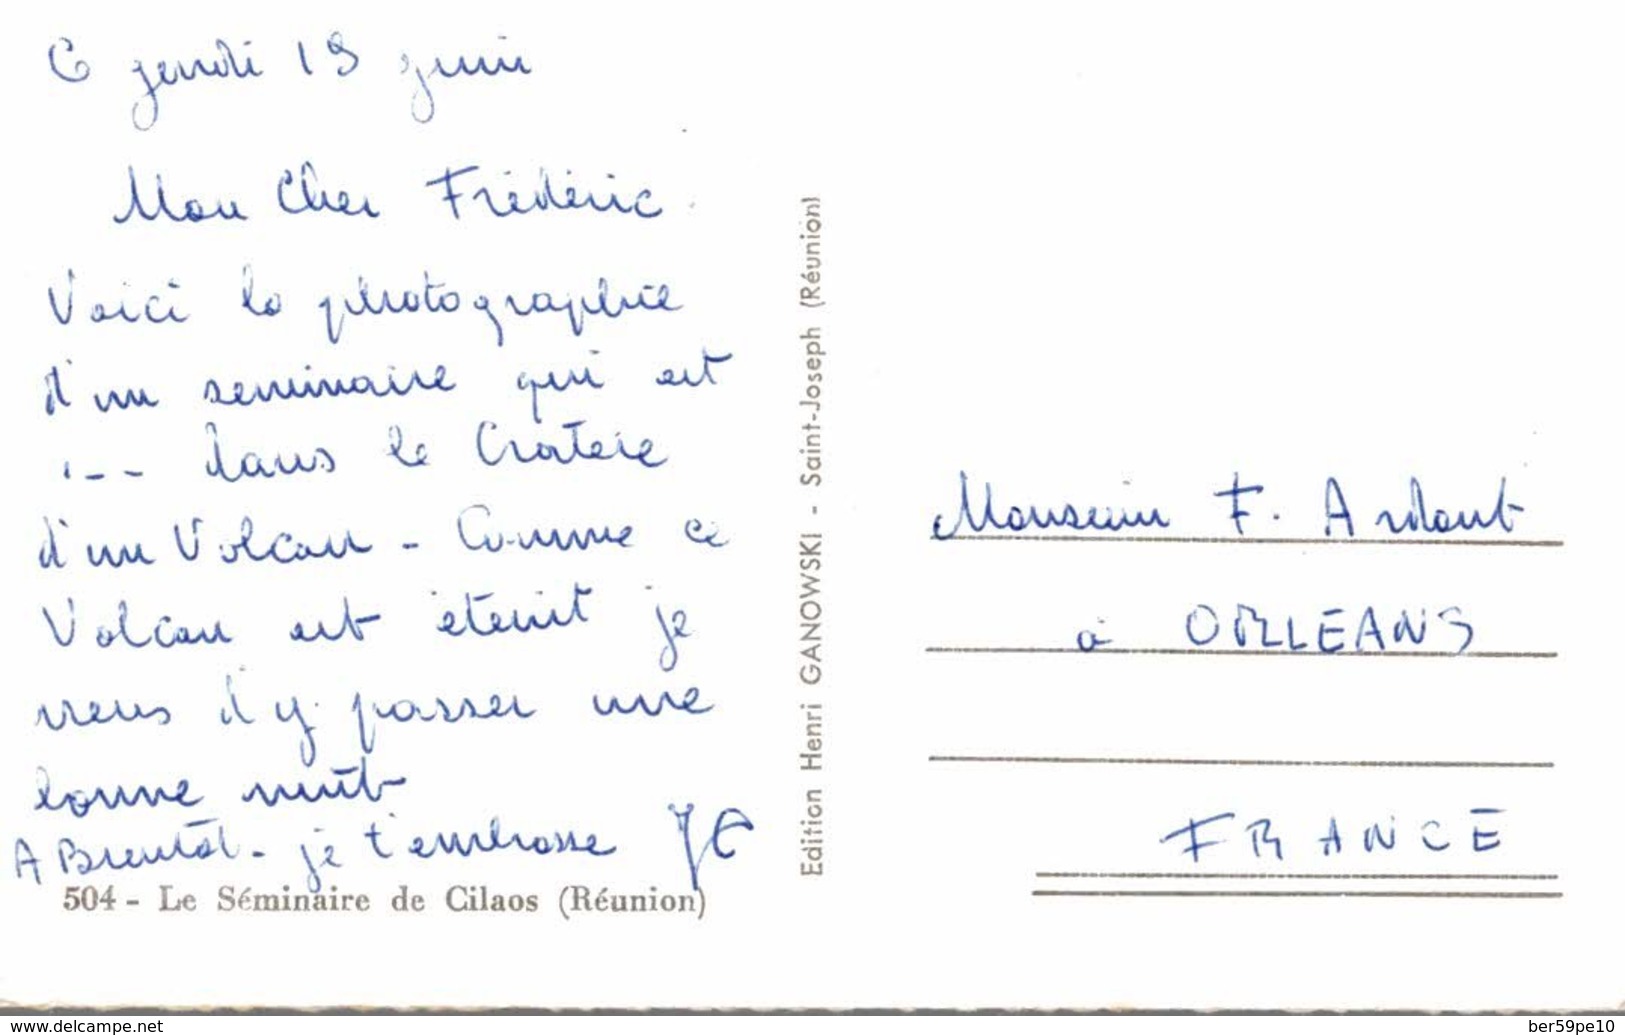 Ce jeudi 19 juin
Mon Cher Frédéric.
Voici la photographie
d'un seminaire qui est
... dans le Cratere
d'un Volcan - Comme ce
Volcan est éteint je
viens d'y passer une
bonne nuit
A Bientôt - je t'embrasse
504 - Le Séminaire de Cilaos (Réunion)
Edition Henri GANOWSKI - Saint-Joseph (Réunion)
Monsieur F. Ardant
à ORLEANS
FRANCE
www.delcampe.net
ber59pe10